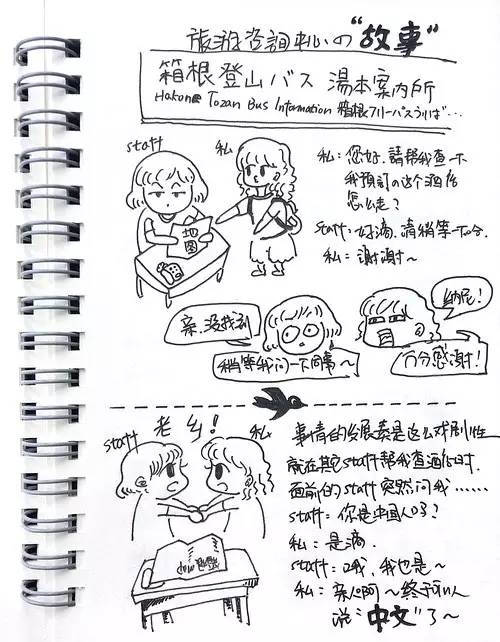 旅游咨詢中心の"故事"
箱根登山バス 湯本案内所
Hakone Tozan Bus Information 箱根フリーパスうりば…
staff
私
私：您好.請幫我查一下
我預訂の这个酒店
怎么走？
staff：好滴.請稍等一下
私：謝謝～
地圖
亲.没找到
稍等我问一下同事～
納尼！
万分感謝！
staff
老乡！
私
事情的发展素是这么戏劇性
就在其它staff幫我查酒店时.
面前的staff突然问我……
staff：你是中国人吗？
私：是滴.
staff：哦.我也是～
私：亲人啊～终于可以
说"中文"了～